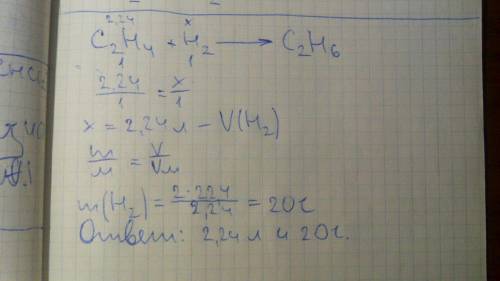 2,24 x
C₂H₄ + H₂ ⟶ C₂H₆
1 1
2,24/1 = x/1
x = 2,24 л – V(H₂)
m/м = V/Vм
m(H₂) = 2·224/2,24 = 20г
Ответ: 2,24 л и 20г.